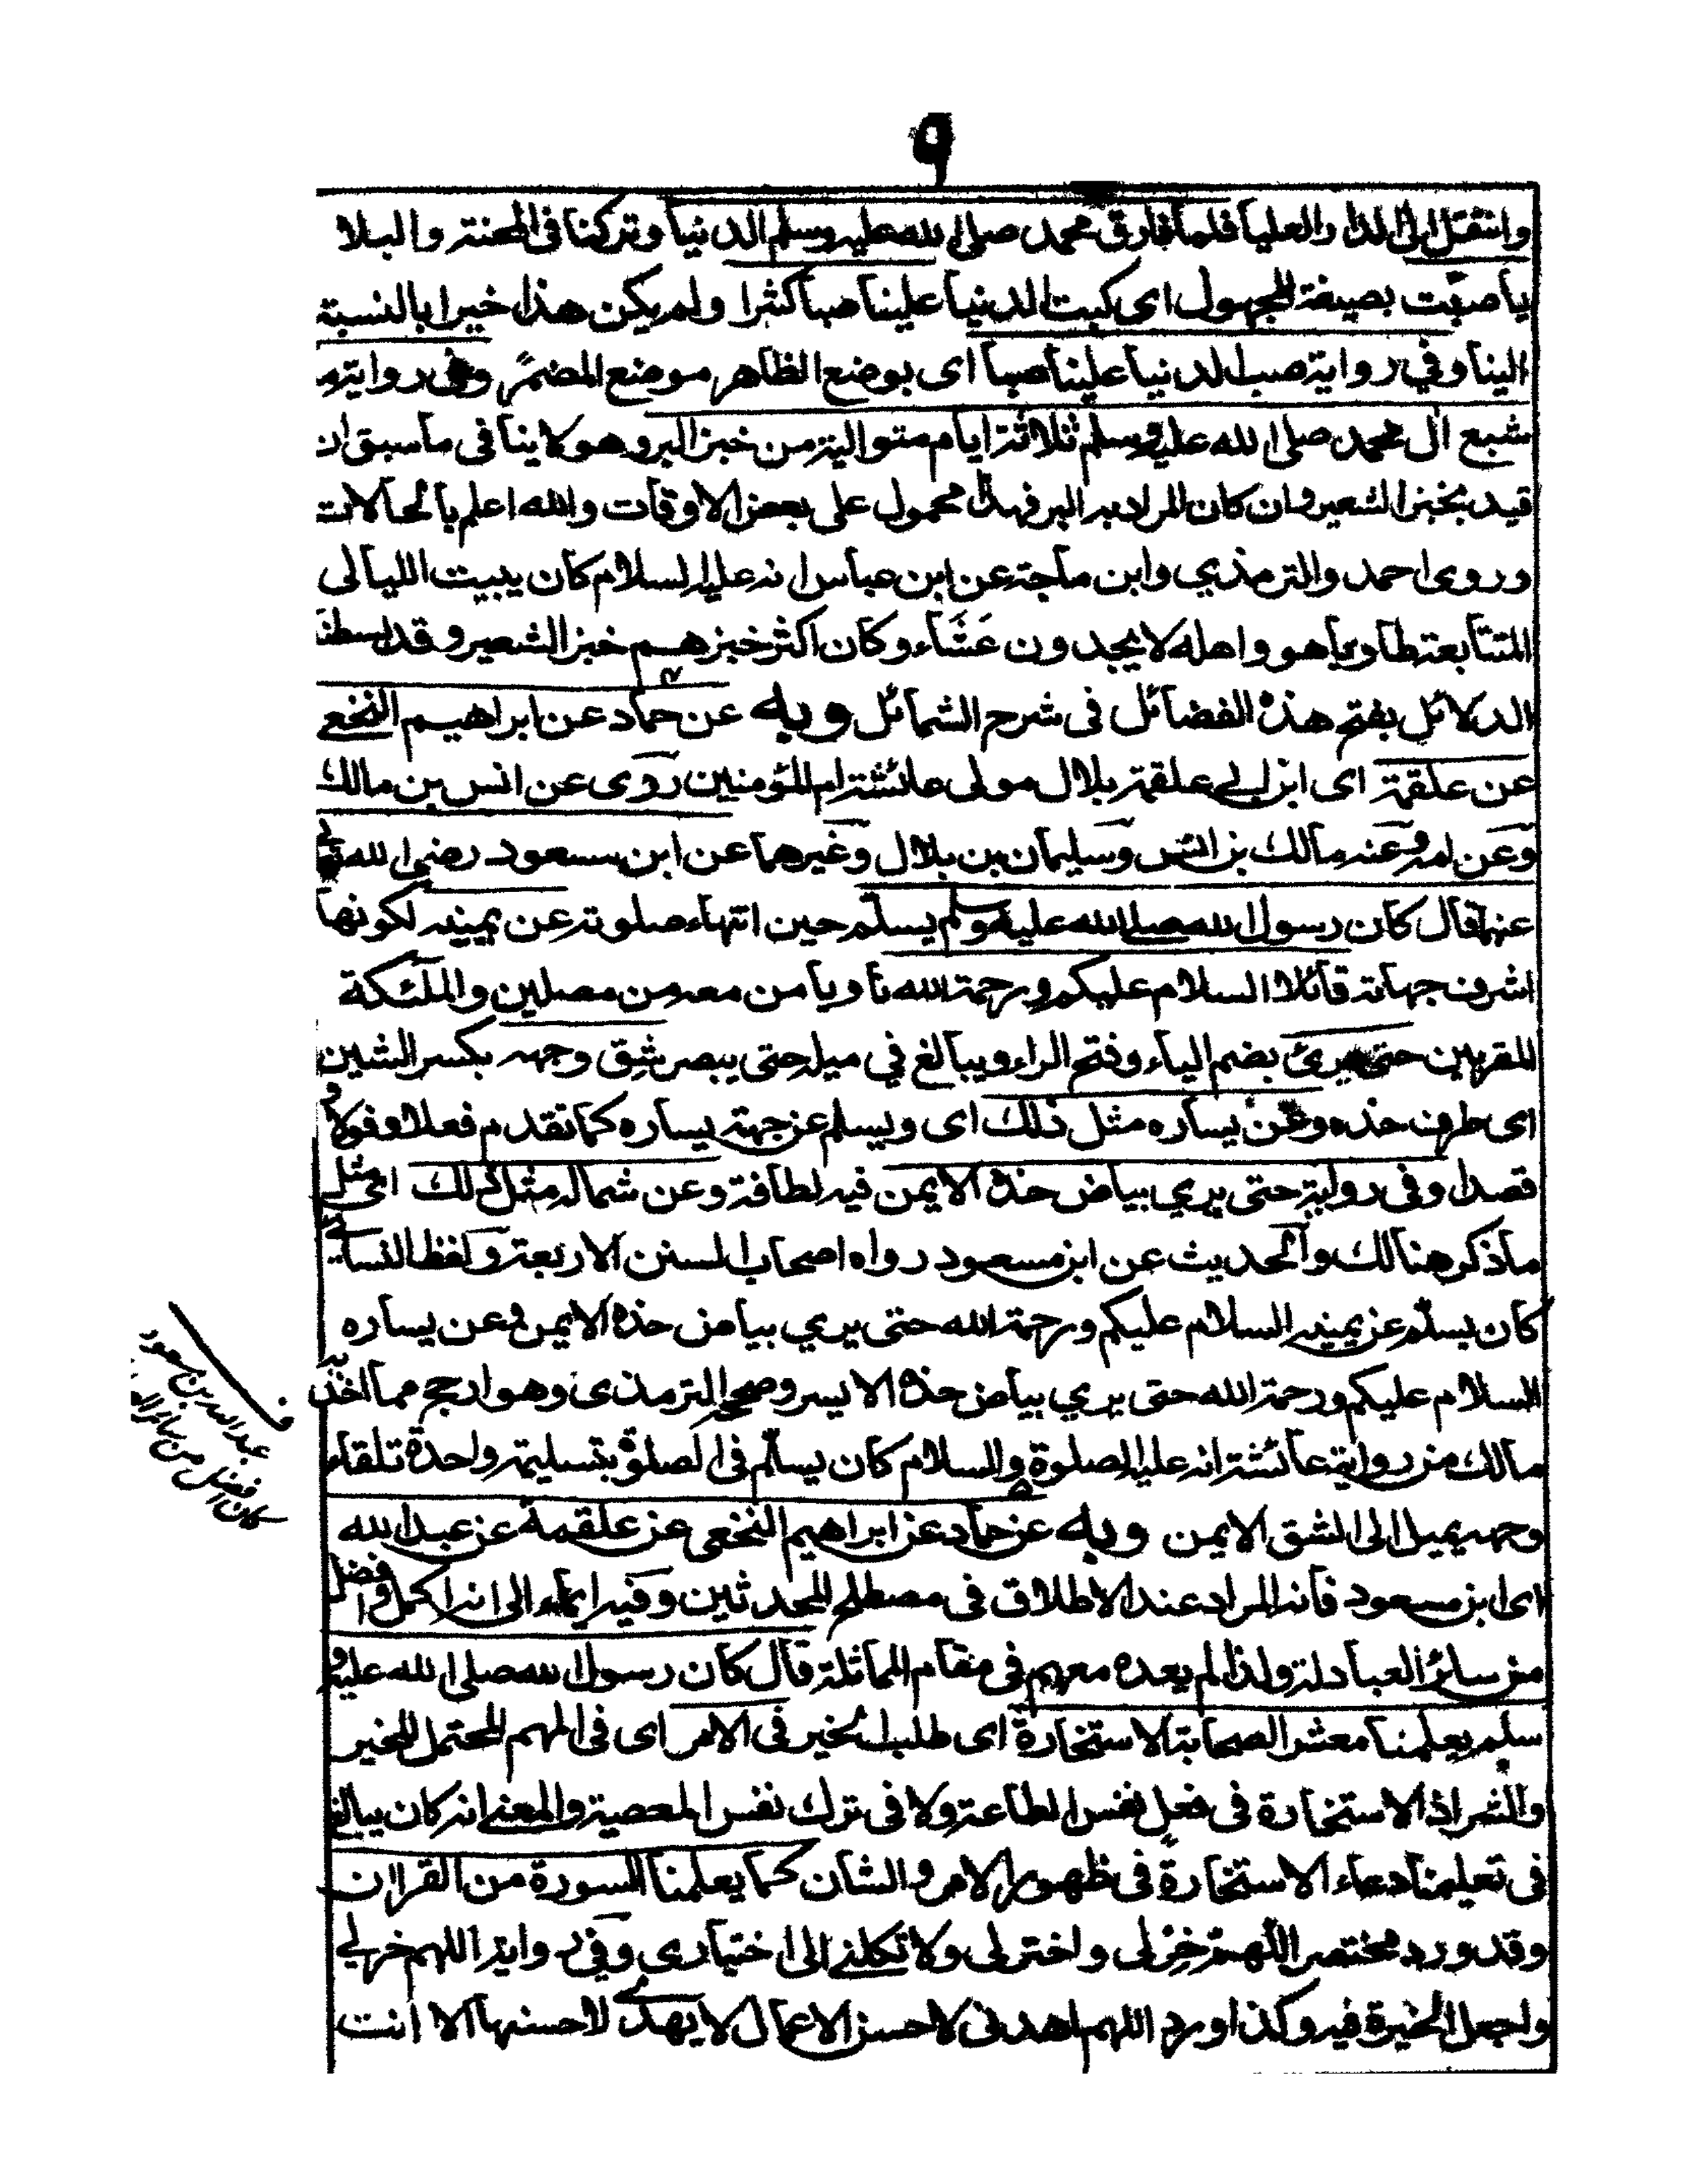 ٩
وانتقل الى الدار العليا فلما فارق محمد صلى الله عليه وسلم الدنيا وتركنا فى المحنة والبلا
يا صبّت بصيغة المجهول اى كبت الدنيا علينا صبا كثرا ولم يكن هذا خيرا بالنسبة
الينا وفي رواية صب الدنيا علينا صبا اى بوضع الظاهر موضع المضمر وفى رواية ما
شبع ال محمد صلى الله عليه وسلم ثلاثة ايام متوالية من خبز البر وهو لا ينافى ما سبق ان
قيد بخبز الشعير وان كان المراد به البر فهذا محمول على بعض الاوقات والله اعلم بالحالات
وروى احمد والترمذي وابن ماجة عن ابن عباس انه عليه السلام كان يبيت الليالى
المتتابعة طاويا هو واهله لا يجدون عَشَاء وكان اكثر خبزهم خبز الشعير وقد بسطنا
الدلائل بفتح هذه الفضائل فى شرح الشمائل وبه عن حماد عن ابراهيم النخعى
عن علقمة اى ابن ابي علقمة بلال مولى عائشة ام المؤمنين روى عن انس بن مالك
وعن امه وعنه مالك بن انس وسليمان بن بلال وغيرهما عن ابن مسعود رضى الله تعالى
عنهما قال كان رسول الله صلى الله عليه وسلم يسلّم حين انتهاء صلوته عن يمينه لكونها
اشرف جهاته قائلا السلام عليكم ورحمة الله ناويا من معه من مصلين والملئكة
المقربين حتى يرئ بضم الياء وفتح الراء ويبالغ في ميله حتى يبصر شق وجهه بكسر الشين
اى طرف خده وعن يساره مثل ذلك اى ويسلم عن جهة يساره كما تقدم فعلا وقولا و
قصدا وفى رواية حتى يري بياض خده الايمن فيه لطافة وعن شماله مثل ذلك اى مثل
ما ذكر هنالك والحديث عن ابن مسعود رواه اصحاب السنن الاربعة ولفظ النسائي
كان يسلّم عن يمينه السلام عليكم ورحمة الله حتى يري بياض خده الايمن وعن يساره
السلام عليكم ورحمة الله حتى يري بياض خده الايسر وصححه الترمذى وهو ارجح مما اخذ به
مالك من رواية عائشة انه عليه الصلوة والسلام كان يسلّم فى الصلوة بتسليمة واحدة تلقاء
وجهه يميل الى الشق الايمن وبه عن حماد عن ابراهيم النخعى عن علقمة عن عبد الله
اى ابن مسعود فانه المراد عند الاطلاق فى مصطلح المحدثين وفيه ايماء الى انه اكمل وافضل
من سائر العبادلة ولذا لم يعده معهم فى مقام المماثلة قال كان رسول الله صلى الله عليه و
سلم يعلمنا معشر الصحابة الاستخارة اى طلب الخير فى الامر اى فى المهم المحتمل للخير
والشر اذ لا استخارة فى فعل نفس الطاعة ولا فى ترك نفس المعصية والمعنى انه كان يبالغ
فى تعليمنا دعاء الاستخارة فى ظهور الامر والشان كما يعلمنا السورة من القران
وقد ورد مختصر اللّهمّ خِرْ لى واختر لى ولا تكلنى الى اختيارى وفي رواية اللهم خر لي
واجعل الخيرة فيه وكذا ورد اللهم اهدنى لاحسن الاعمال لا يهدى لاحسنها الا انت
ف
عبد الله بن مسعود
كان افضل من سائر